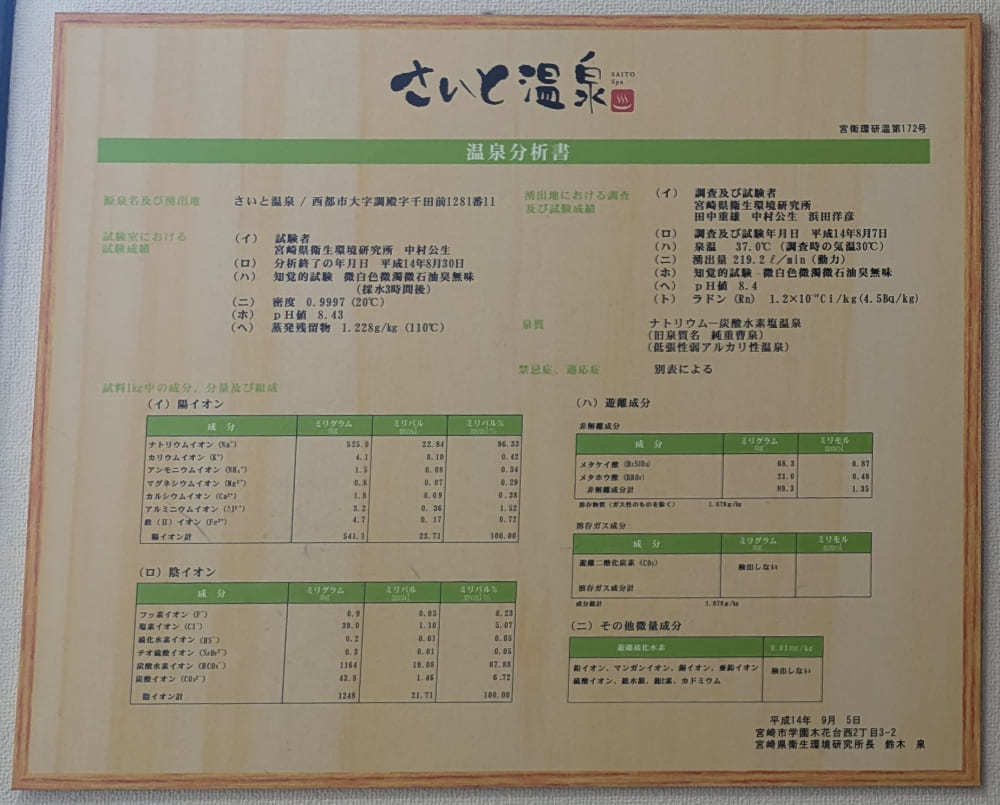 さいと温泉
SAITO
Spa
宮衛環研温第172号
温泉分析書
源泉名及び湧出地 さいと温泉 / 西都市大字調殿字千田前1281番11
試験室における
試験成績
(イ) 試験者
宮崎県衛生環境研究所 中村公生
(ロ) 分析終了の年月日 平成14年8月30日
(ハ) 知覚的試験 微白色微濁微石油臭無味
(採水3時間後)
(ニ) 密度 0.9997 (20℃)
(ホ) pH値 8.43
(ヘ) 蒸発残留物 1.228g/kg (110℃)
湧出地における調査
及び試験成績
(イ) 調査及び試験者
宮崎県衛生環境研究所
田中重雄 中村公生 浜田洋彦
(ロ) 調査及び試験年月日 平成14年8月7日
(ハ) 泉温 37.0℃ (調査時の気温30℃)
(ニ) 湧出量 219.2 ℓ/min (動力)
(ホ) 知覚的試験 微白色微濁微石油臭無味
(ヘ) pH値 8.4
(ト) ラドン (Rn) 1.2×10 Ci/kg(4.5Bq/kg)
泉質 ナトリウム―炭酸水素塩温泉
(旧泉質名 純重曹泉)
(低張性弱アルカリ性温泉)
禁忌症、適応症 別表による
試料1kg中の成分、分量及び組成
(イ) 陽イオン
成 分 ミリグラム ミリバル ミリバル%
ナトリウムイオン (Na⁺) 525.0 22.84 96.33
カリウムイオン (K⁺) 4.1 0.10 0.42
アンモニウムイオン (NH₄⁺) 1.5 0.08 0.34
マグネシウムイオン (Mg²⁺) 0.8 0.07 0.29
カルシウムイオン (Ca²⁺) 1.8 0.09 0.38
アルミニウムイオン (Al³⁺) 3.2 0.36 1.52
鉄 (Ⅱ) イオン (Fe²⁺) 4.7 0.17 0.72
陽イオン計 541.1 23.71 100.00
(ロ) 陰イオン
成 分 ミリグラム ミリバル ミリバル%
フッ素イオン (F⁻) 0.9 0.05 0.23
塩素イオン (Cl⁻) 39.0 1.10 5.07
硫化水素イオン (HS⁻) 0.2 0.01 0.05
チオ硫酸イオン 0.3 0.01 0.05
炭酸水素イオン (HCO₃⁻) 1164 19.08 87.88
炭酸イオン (CO₃²⁻) 43.8 1.46 6.72
陰イオン計 1248 21.71 100.00
(ハ) 遊離成分
非解離成分
成 分 ミリグラム ミリモル
メタケイ酸 (H₂SiO₃) 68.3 0.87
メタホウ酸 (HBO₂) 21.0 0.48
非解離成分計 89.3 1.35
溶存物質 (ガス性のものを除く) 1.878g/kg
溶存ガス成分
成 分 ミリグラム ミリモル
遊離二酸化炭素 (CO₂) 検出しない
溶存ガス成分計
成分総計 1.878g/kg
(ニ) その他微量成分
遊離硫化水素
鉛イオン、マンガンイオン、銅イオン、亜鉛イオン 検出しない
硫酸イオン、総水銀、総ヒ素、カドミウム
平成14年 9月 5日
宮崎市学園木花台西2丁目3-2
宮崎県衛生環境研究所長 鈴木 泉